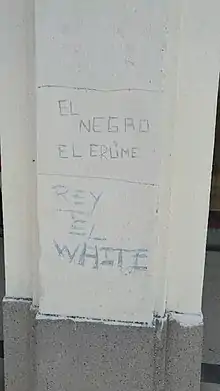 EL
NEGRO
EL ERÚME
REY
EL
WHITE